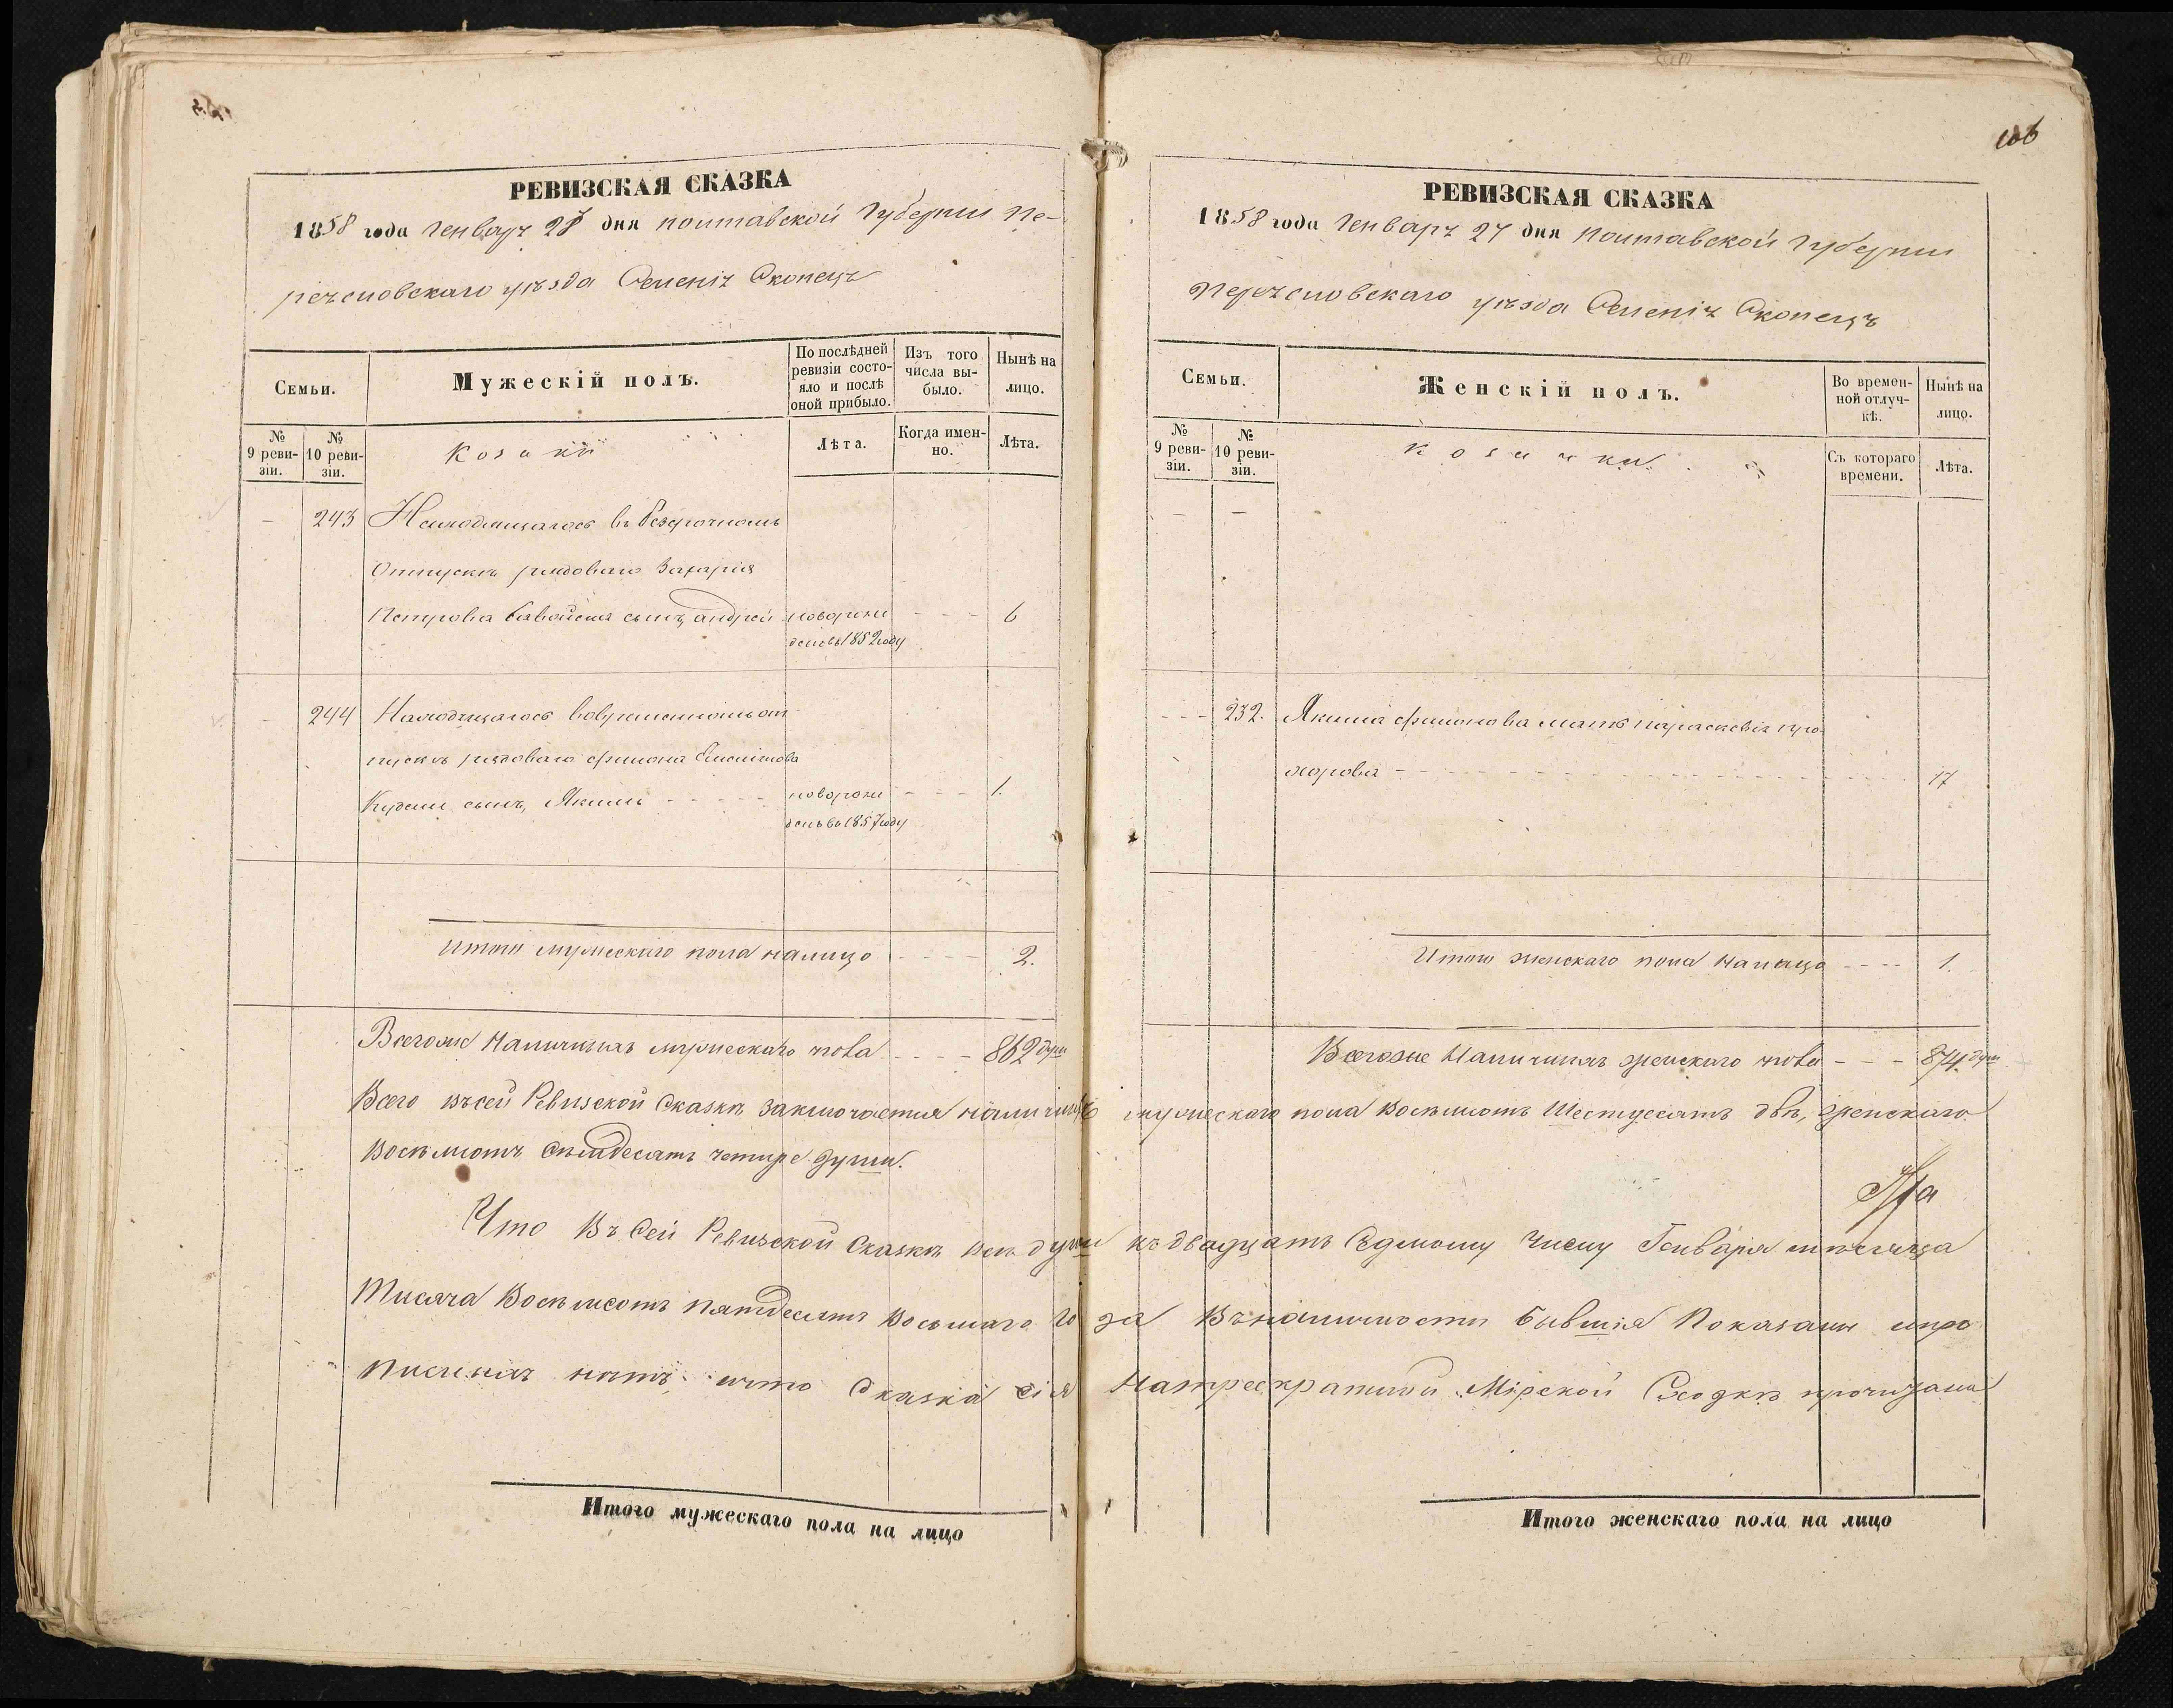 106
РЕВИЗСКАЯ СКАЗКА
1858 года Генваря 27 дня Полтавской Губерніи Пе-
реяславскаго уѣзда Селеніе Скопецъ
Семьи.
Мужескій полъ.
По послѣдней ревизіи состояло и послѣ оной прибыло.
Изъ того числа выбыло.
Нынѣ на лицо.
№ 9 ревизіи.
№ 10 ревизіи.
Козаки
Лѣта.
Когда именно.
Лѣта.
— 243 Находящагося въ безсрочномъ
Отпускѣ рядоваго Захарія
Петрова сынъ андрей новорож - - - 6
денъ въ 1852 году
— 244 Находящагося во временномъ от
пускѣ рядоваго
сынъ, Якимъ - - - - - новорож - - - 1.
денъ въ 1857 году
Итого мужескаго пола налицо - - - - 2.
Всегоже Наличныхъ мужескаго пола - - - - 862 душ
РЕВИЗСКАЯ СКАЗКА
1858 года Генваря 27 дня Полтавской Губерніи
Переяславскаго уѣзда Селеніе Скопецъ
Семьи.
Женскій полъ.
Во временной отлучкѣ.
Нынѣ на лицо.
№ 9 ревизіи.
№ 10 ревизіи.
Козачки
Съ котораго времени.
Лѣта.
— —
- - - 232. Якима мать параскевія про
хорова - - - - 17
Итого женскаго пола налицо - - - - 1.
Всегоже Наличныхъ женскаго пола - - - 874 душ
Всего въ сей Ревизской Сказкѣ заключается наличныхъ мужескаго пола Восѣмсотъ Шестдесятъ двѣ, женскаго
Восѣмсотъ Сѣмдесятъ четире души.
Что Въ Сей Ревизской Сказкѣ всѣ души къ двадцать Седмому Числу Генваря мѣсяца
Тисяча Восѣмсотъ пятдесятъ Восьмаго Года Въ наличности бывшія Показаны и про
писныхъ нѣтъ, и что Сказка сія На трескратной Мірской Сходкѣ прочитана
Итого мужескаго пола на лицо
Итого женскаго пола на лицо